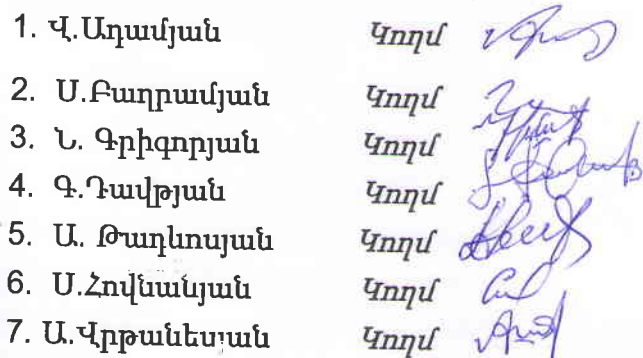 1. Վ.Ադամյան Կողմ
2. Ս.Բաղրամյան Կողմ
3. Ն. Գրիգորյան Կողմ
4. Գ.Դավթյան Կողմ
5. Ա. Թադևոսյան Կողմ
6. Ս.Հովնանյան Կողմ
7. Ա.Վրթանեսյան Կողմ